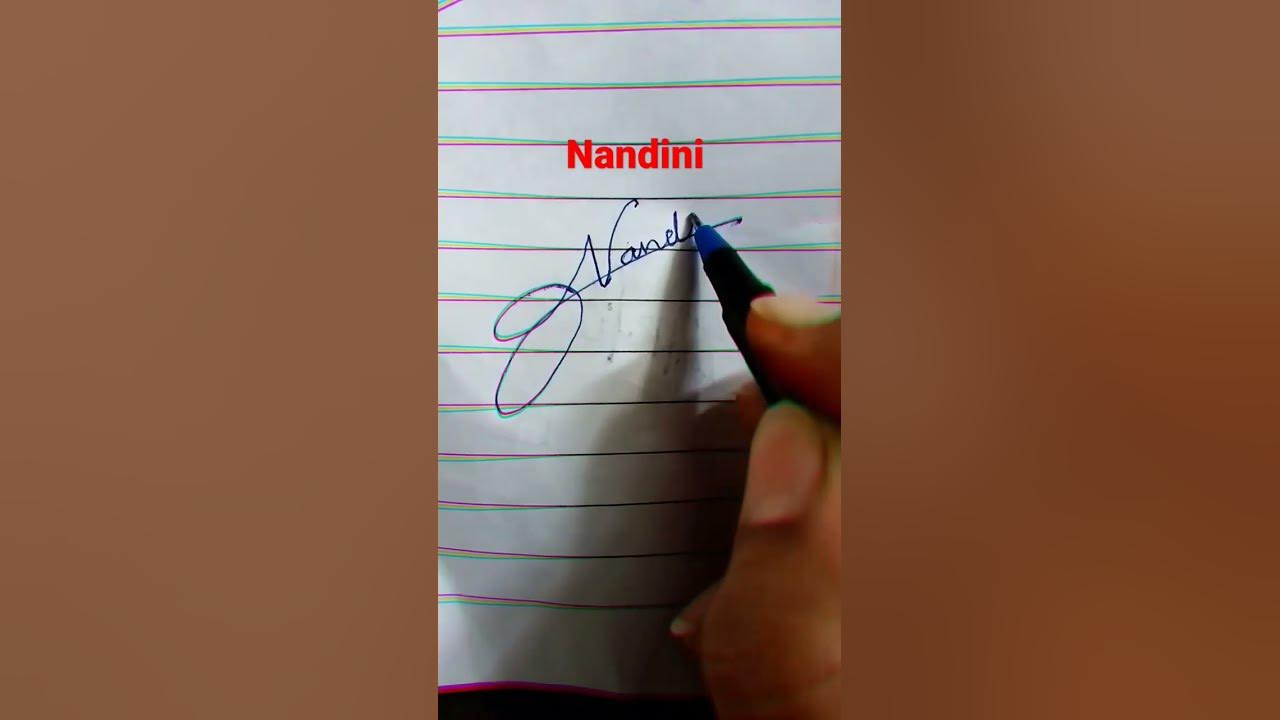 Nandini
Nand